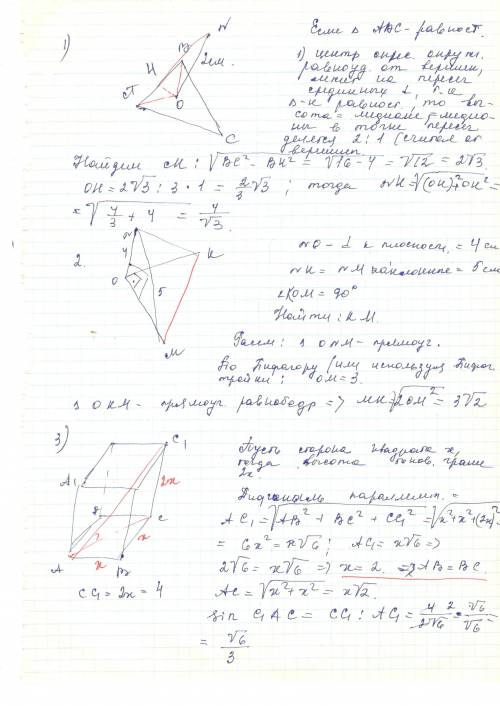 1)
N
B
H
2см.
A
O
C
Если Δ ABC - равност.
1) Центр опис. окруж.
равноуд от вершин,
лежит на перес
срединных ⊥, т.к
Δ-к равност, то вы-
сота = медиане = медиа-
ны в точке перес
делятся 2:1 (считая от
вершин
Найдем CH: √BC² - BH² = √16-4 = √12 = 2√3.
OH = 2√3 : 3 · 1 = 2/3 √3 ; тогда NH = √(OH)²+OH² =
= √4/3 + 4 = 4/√3.
2.
N
4
K
O
5
M
NO - ⊥ к плоскост. = 4 см
NK = NM наклонные = 5 см
∠KOM = 90°
Найти: KM.
Рассм: Δ ONM - прямоуг.
По Пифагору (или используя Пифаг.
тройки: OM = 3.
Δ OKM - прямоуг равнобедр => MK = √2OM² = 3√2
3)
C1
A1
2x
B
C
A
x
x
B
CC1 = 2x = 4
Пусть сторона квадрата x,
тогда высота боков. грани
2x.
Диагональ параллелип. =
AC1 = √AB² + BC² + CC1² = √x²+x²+(2x)²
= 6x² = x√6 ; AC1 = x√6 =>
2√6 = x√6 => x = 2. => AB = BC.
AC = √x²+x² = x√2.
Sin C1AC = CC1 : AC1 = 4/2√6 = 2/√6 · √6/√6
= √6/3